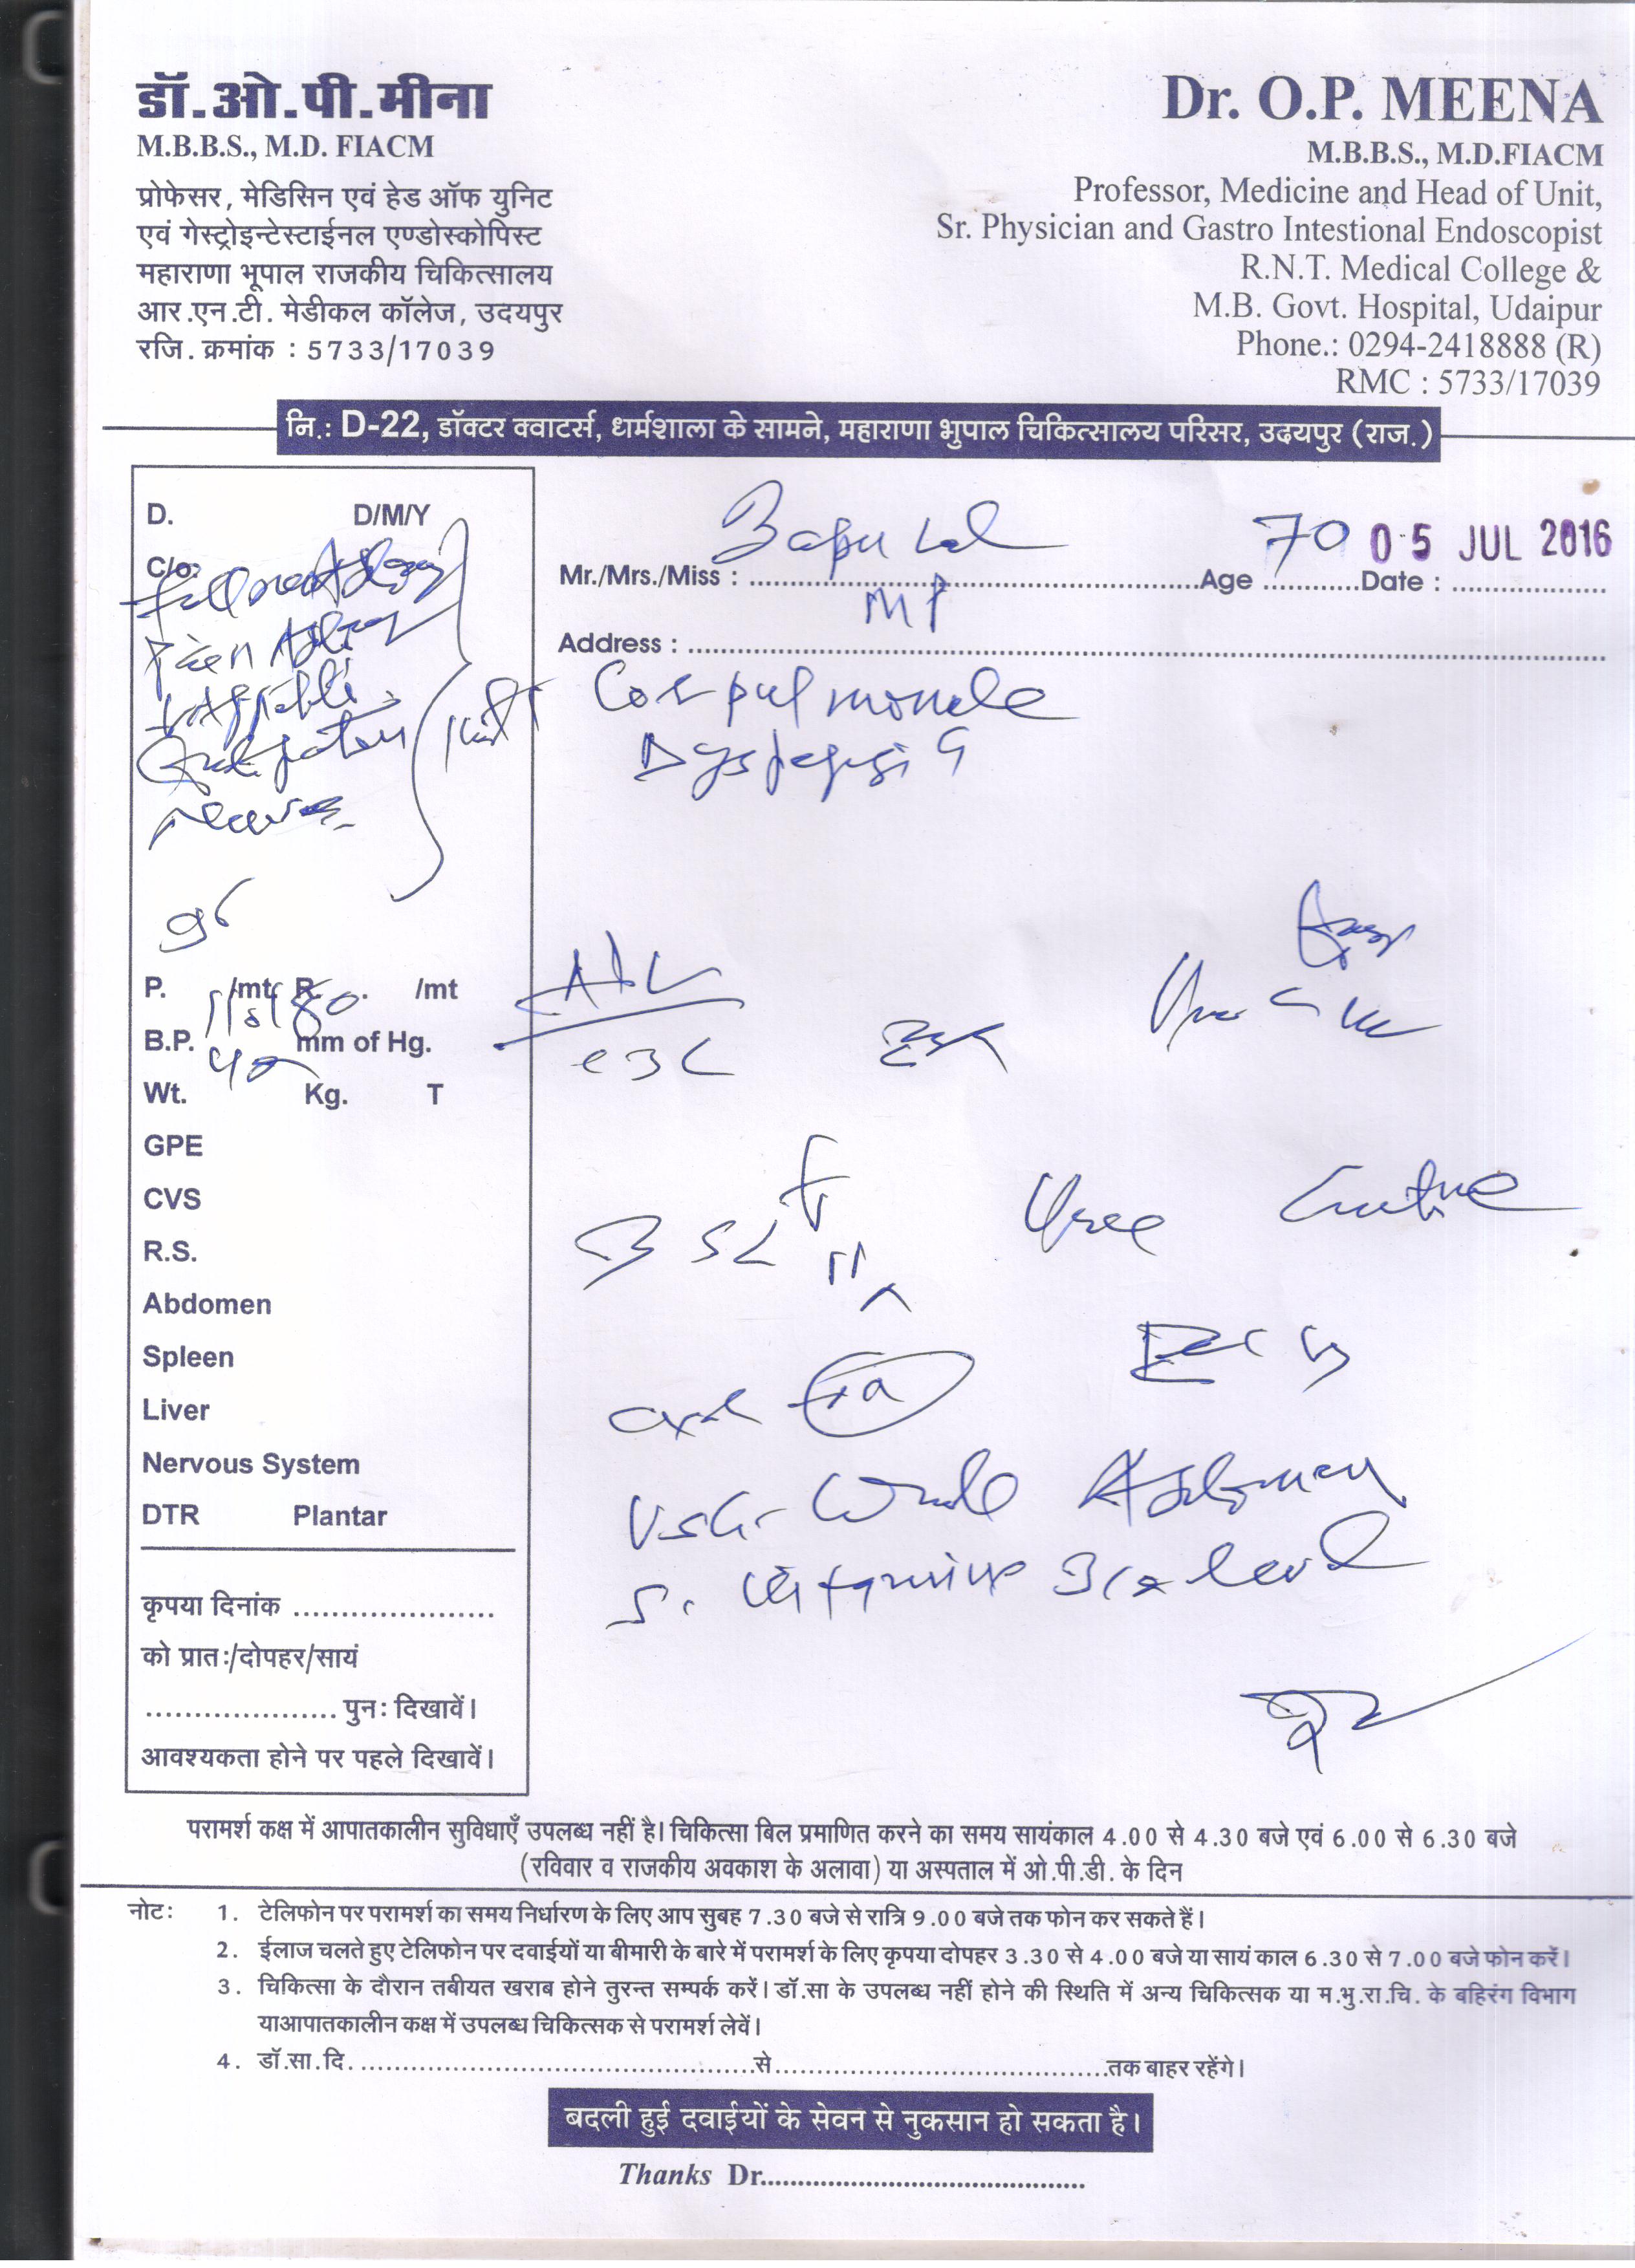 डॉ.ओ.पी.मीना
M.B.B.S., M.D. FIACM
प्रोफेसर, मेडिसिन एवं हेड ऑफ युनिट
एवं गेस्ट्रोइन्टेस्टाईनल एण्डोस्कोपिस्ट
महाराणा भूपाल राजकीय चिकित्सालय
आर.एन.टी. मेडीकल कॉलेज, उदयपुर
रजि. क्रमांक : 5733/17039
Dr. O.P. MEENA
M.B.B.S., M.D.FIACM
Professor, Medicine and Head of Unit,
Sr. Physician and Gastro Intestional Endoscopist
R.N.T. Medical College &
M.B. Govt. Hospital, Udaipur
Phone.: 0294-2418888 (R)
RMC : 5733/17039
नि.: D-22, डॉक्टर क्वाटर्स, धर्मशाला के सामने, महाराणा भुपाल चिकित्सालय परिसर, उदयपुर (राज.)
D. D/M/Y
C/o:
P. /mt R. /mt
B.P. mm of Hg.
Wt. Kg. T
GPE
CVS
R.S.
Abdomen
Spleen
Liver
Nervous System
DTR Plantar
कृपया दिनांक ....................
को प्रातः/दोपहर/सायं
.................... पुनः दिखावें।
आवश्यकता होने पर पहले दिखावें।
Mr./Mrs./Miss : Bapu Lal Age 70 Date : 05 JUL 2016
Address : MP
Cor pulmonale
Dyspepsia
CBC
Urea Creatinine
ECG
USG Whole Abdomen
S. Vitamine B12 level
परामर्श कक्ष में आपातकालीन सुविधाएँ उपलब्ध नहीं है। चिकित्सा बिल प्रमाणित करने का समय सायंकाल 4.00 से 4.30 बजे एवं 6.00 से 6.30 बजे
(रविवार व राजकीय अवकाश के अलावा) या अस्पताल में ओ.पी.डी. के दिन
नोटः 1. टेलिफोन पर परामर्श का समय निर्धारण के लिए आप सुबह 7.30 बजे से रात्रि 9.00 बजे तक फोन कर सकते हैं।
2. ईलाज चलते हुए टेलिफोन पर दवाईयों या बीमारी के बारे में परामर्श के लिए कृपया दोपहर 3.30 से 4.00 बजे या सायं काल 6.30 से 7.00 बजे फोन करें।
3. चिकित्सा के दौरान तबीयत खराब होने तुरन्त सम्पर्क करें। डॉ.सा के उपलब्ध नहीं होने की स्थिति में अन्य चिकित्सक या म.भु.रा.चि. के बहिरंग विभाग
याआपातकालीन कक्ष में उपलब्ध चिकित्सक से परामर्श लेवें।
4. डॉ.सा.दि. ........................................से........................................तक बाहर रहेंगे।
बदली हुई दवाईयों के सेवन से नुकसान हो सकता है।
Thanks Dr........................................